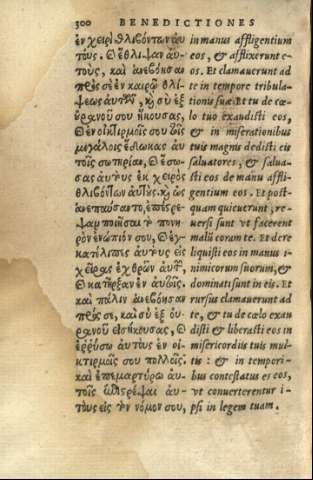 300 BENEDICTIONES
ἐν χειρὶ θλιβόντων αὐ
τούς. Θ ἔθλιψαν αὐ-
τοὺς, καὶ ἀνεβόησαν
πρὸς σὲ ἐν καιρῷ θλί-
ψεως αὐτῶν, κ σὺ ἐξ
οὐρανοῦ σου ἤκουσας,
Θ ἐν οἰκτιρμοῖς σου
μεγάλοις ἔδωκας αὐ
τοῖς σωτηρίαν, Θ ἔσω-
σας αὐτοὺς ἐκ χειρὸς
θλιβόντων αὐτούς. κ ὡς
ἀνεπαύσαντο, ἐπέστρε-
ψαν ποιῆσαι τὸ πονη-
ρὸν ἐνώπιόν σου, Θ ἐγ-
κατέλιπες αὐτοὺς εἰς
χεῖρας ἐχθρῶν αὐτῶν
Θ κατῆρξαν ἐν αὐτοῖς.
καὶ πάλιν ἀνεβόησαν
πρός σε, καὶ σὺ ἐξ οὐ-
ρανοῦ εἰσήκουσας, Θ
ἐρρύσω αὐτοὺς ἐν οἰ-
κτιρμοῖς σου πολλοῖς.
καὶ ἐπεμαρτύρω αὐ-
τοῖς ἐπιστρέψαι αὐ-
τοὺς εἰς τὸν νόμον σου,
in manus affligentium
eos, & afflixerunt e-
os. Et clamauerunt ad
te in tempore tribula-
tionis suæ. Et tu de cæ-
lo tuo exaudisti eos,
& in miserationibus
tuis magnis dedisti eis
saluatores, & salua-
sti eos de manu affli-
gentium eos. Et post-
quam quieuerunt, re-
uersi sunt vt facerent
malū coram te. Et dere
liquisti eos in manus i-
nimicorum suorum, &
dominati sunt in eis. Et
rursus clamauerunt ad
te, & tu de cælo exau
disti & liberasti eos in
misericordiis tuis mul-
tis: & in tempori-
bus contestatus es eos,
vt conuerterentur i-
psi in legem tuam.